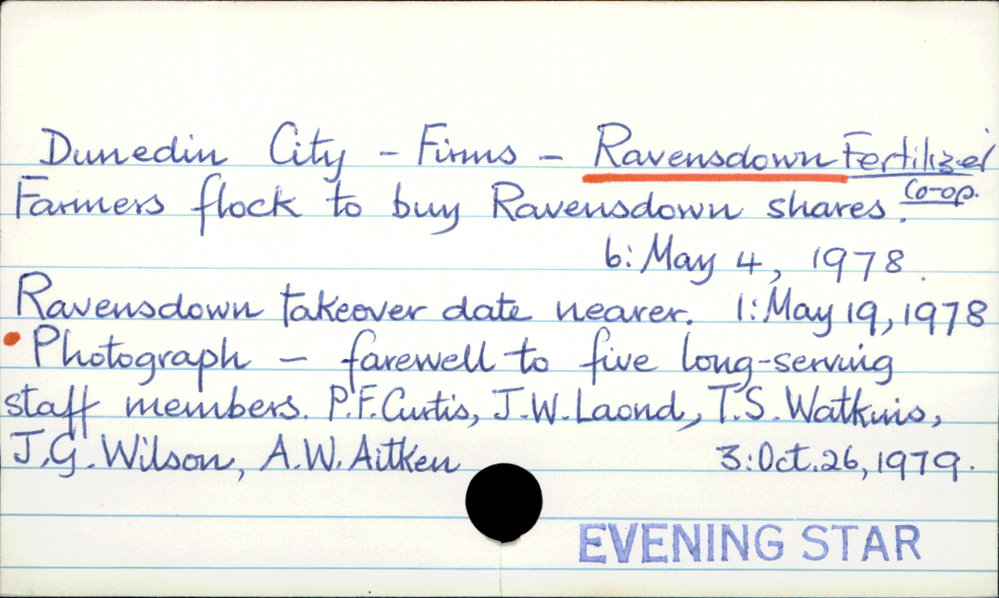 Dunedin City - Firms - Ravensdown Fertilizer
Co-op.
Farmers flock to buy Ravensdown shares.
6: May 4, 1978.
Ravensdown takeover date nearer. 1: May 19, 1978
• Photograph - farewell to five long-serving
staff members. P.F. Curtis, J.W. Laond, T.S. Watkins,
J.G. Wilson, A.W. Aitken 3: Oct. 26, 1979.
EVENING STAR